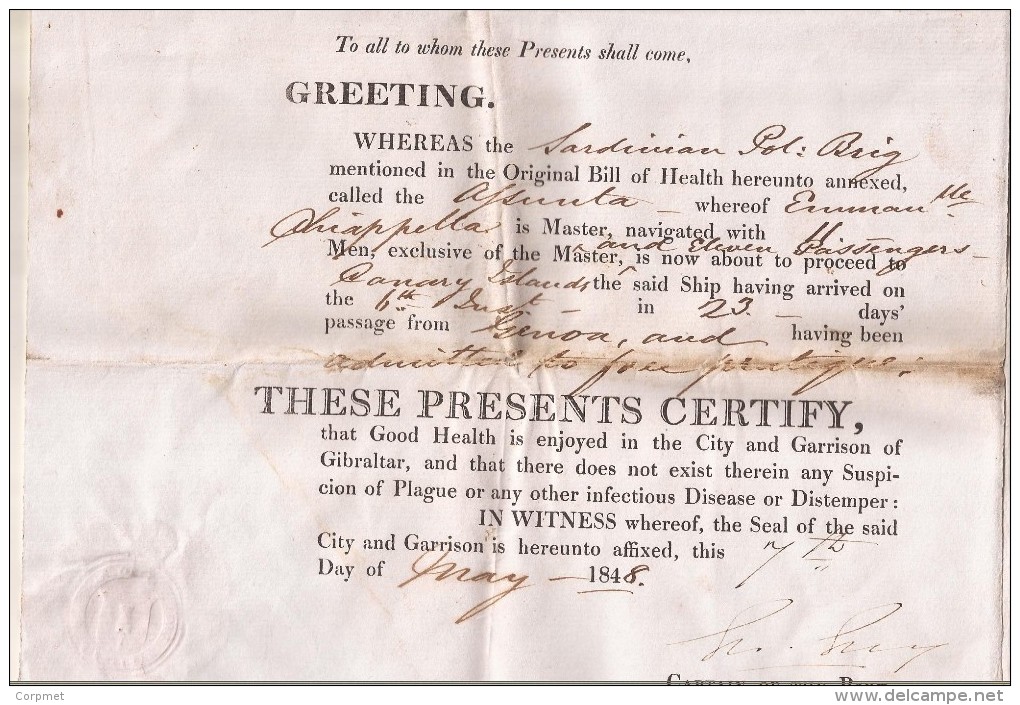 To all to whom these Presents shall come,
GREETING.
WHEREAS the Sardinian Pol: Brig
mentioned in the Original Bill of Health hereunto annexed,
called the Assunta — whereof Emman^lle
Chiappella is Master, navigated with 11
Men, exclusive of the Master, ^ and Eleven Passengers — is now about to proceed to
Canary Islands the said Ship having arrived on
the 6th Inst — in 23 — days'
passage from Genoa, and having been
admitted to free pratique:
THESE PRESENTS CERTIFY,
that Good Health is enjoyed in the City and Garrison of
Gibraltar, and that there does not exist therein any Suspi-
cion of Plague or any other infectious Disease or Distemper:
IN WITNESS whereof, the Seal of the said
City and Garrison is hereunto affixed, this 7th
Day of May — 1848.
CAPTAIN OF THE PORT
Corpmet
www.delcampe.net